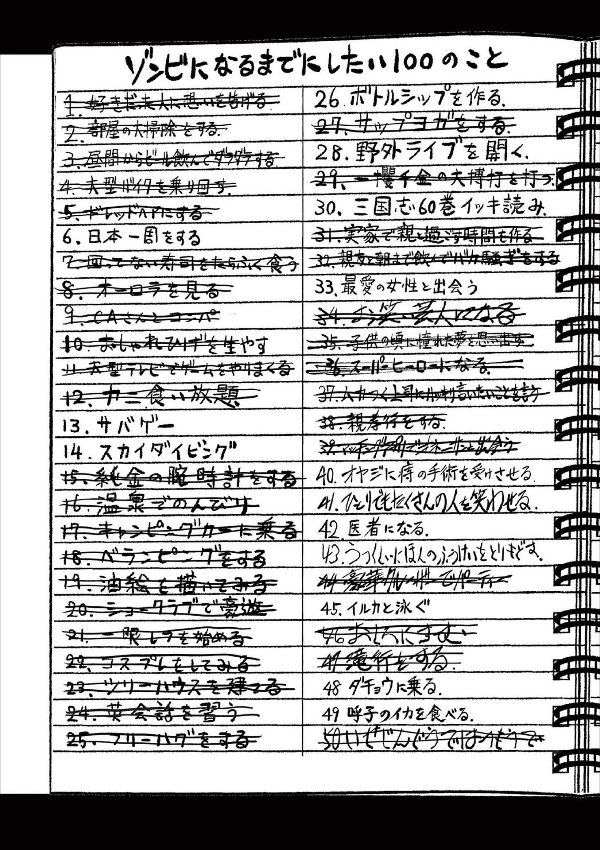 ゾンビになるまでにしたい100のこと
1. 好きだった人に想いを告げる
2. 部屋の大掃除をする.
3. 昼間からビール飲んでダラダラする
4. 大型バイクを乗り回す.
5. ドレッドヘアにする
6. 日本一周をする
7. 回ってない寿司をたらふく食う
8. オーロラを見る
9. CAさんとコンパ
10. おしゃれひげを生やす
11. 大型テレビでゲームをやりまくる
12. カニ食い放題
13. サバゲー
14. スカイダイビング
15. 純金の腕時計をする
16. 温泉でのんびり
17. キャンピングカーに乗る
18. ベランピングをする
19. 油絵を描いてみる
20. ショークラブで豪遊
21. 一眼レフを始める
22. コスプレをしてみる
23. ツリーハウスを建てる
24. 英会話を習う
25. フリーハグをする
26. ボトルシップを作る.
27. サップヨガをする
28. 野外ライブを開く.
29. 一攫千金の大博打を打つ
30. 三国志60巻イッキ読み.
31. 実家で親と過ごす時間を作る
32. 親友と朝まで飲んでバカ騒ぎをする
33. 最愛の女性と出会う
34. お笑い芸人になる
35. 子供の頃に憧れた夢を思い出す
36. スーパーヒーローになる.
37. ムカつく上司にハッキリ言いたいことを言う
38. 親孝行をする.
39. と出会う
40. オヤジに痔の手術を受けさせる.
41. ひとりでもたくさんの人を笑わせる.
42. 医者になる.
43. うつくしいにほんのふうけいをとりもどす.
44. 豪華クルーザーでパーティー
45. イルカと泳ぐ
46.
47. 滝行をする.
48 ダチョウに乗る.
49 呼子のイカを食べる.
50